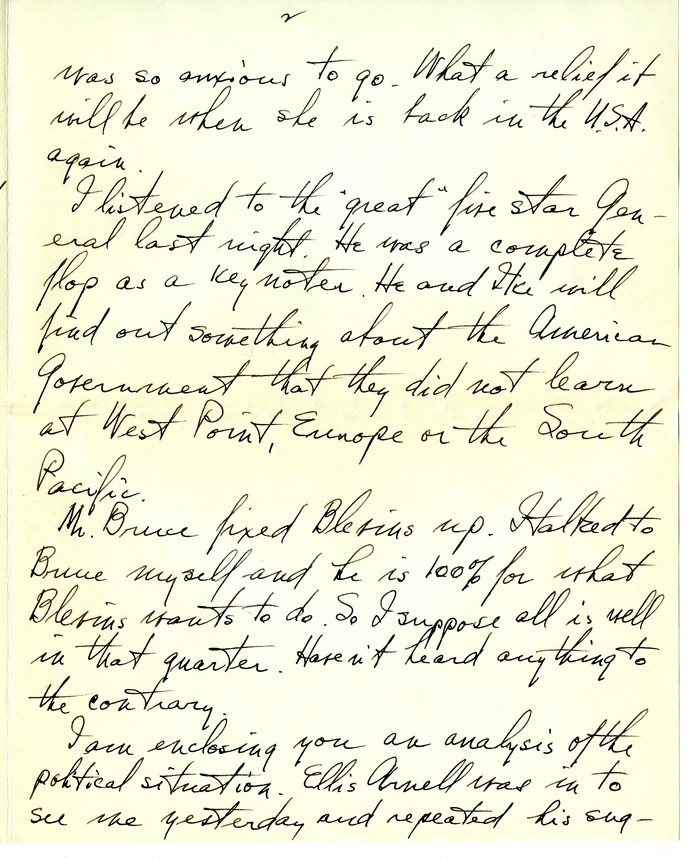 2
was so anxious to go. What a relief it
will be when she is back in the U.S.A.
again.
I listened to the "great" five star Gen-
eral last night. He was a complete
flop as a keynoter. He and Ike will
find out something about the American
Government that they did not learn
at West Point, Europe or the South
Pacific.
Mr. Bruce fixed Blevins up. I talked to
Bruce myself and he is 100% for what
Blevins wants to do. So I suppose all is well
in that quarter. Haven't heard anything to
the contrary.
I am enclosing you an analysis of the
political situation. Ellis Arnell was in to
see me yesterday and repeated his sug-